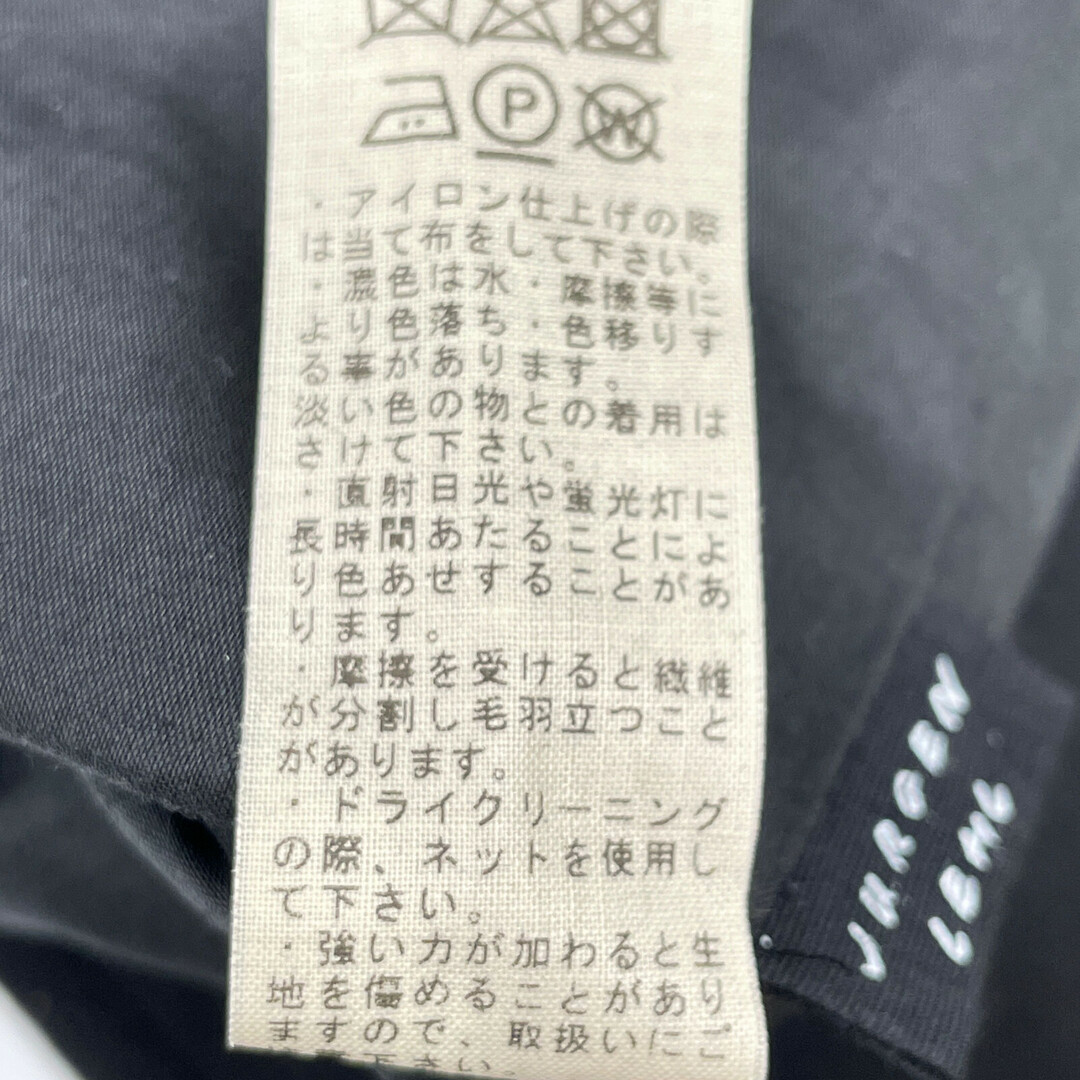 P
W
・アイロン仕上げの際
は当て布をして下さい。
・濃色は水・摩擦等に
より色落ち・色移りす
る事があります。
淡い色の物との着用は
さけて下さい。
・直射日光や蛍光灯に
長時間あたることによ
り色あせすることがあ
ります。
・摩擦を受けると繊維
が分割し毛羽立つこと
があります。
・ドライクリーニング
の際、ネットを使用し
て下さい。
・強い力が加わると生
地を傷めることがあり
ますので、取扱いにご
下さい。
JURGEN
LEHL